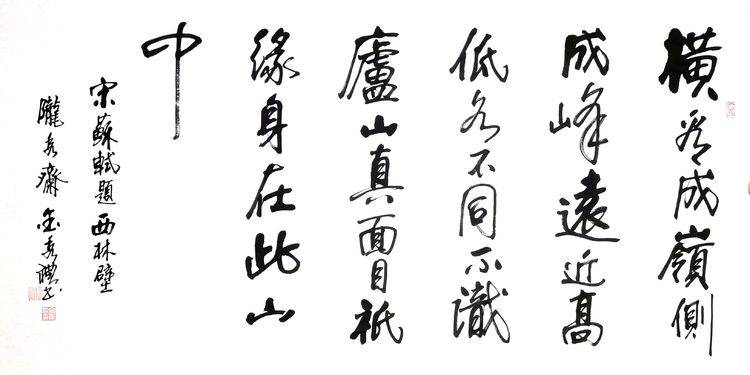 橫看成嶺側
成峰遠近高
低各不同不識
廬山真面目祇
緣身在此山
中
宋蘇軾題西林壁
隴齋書